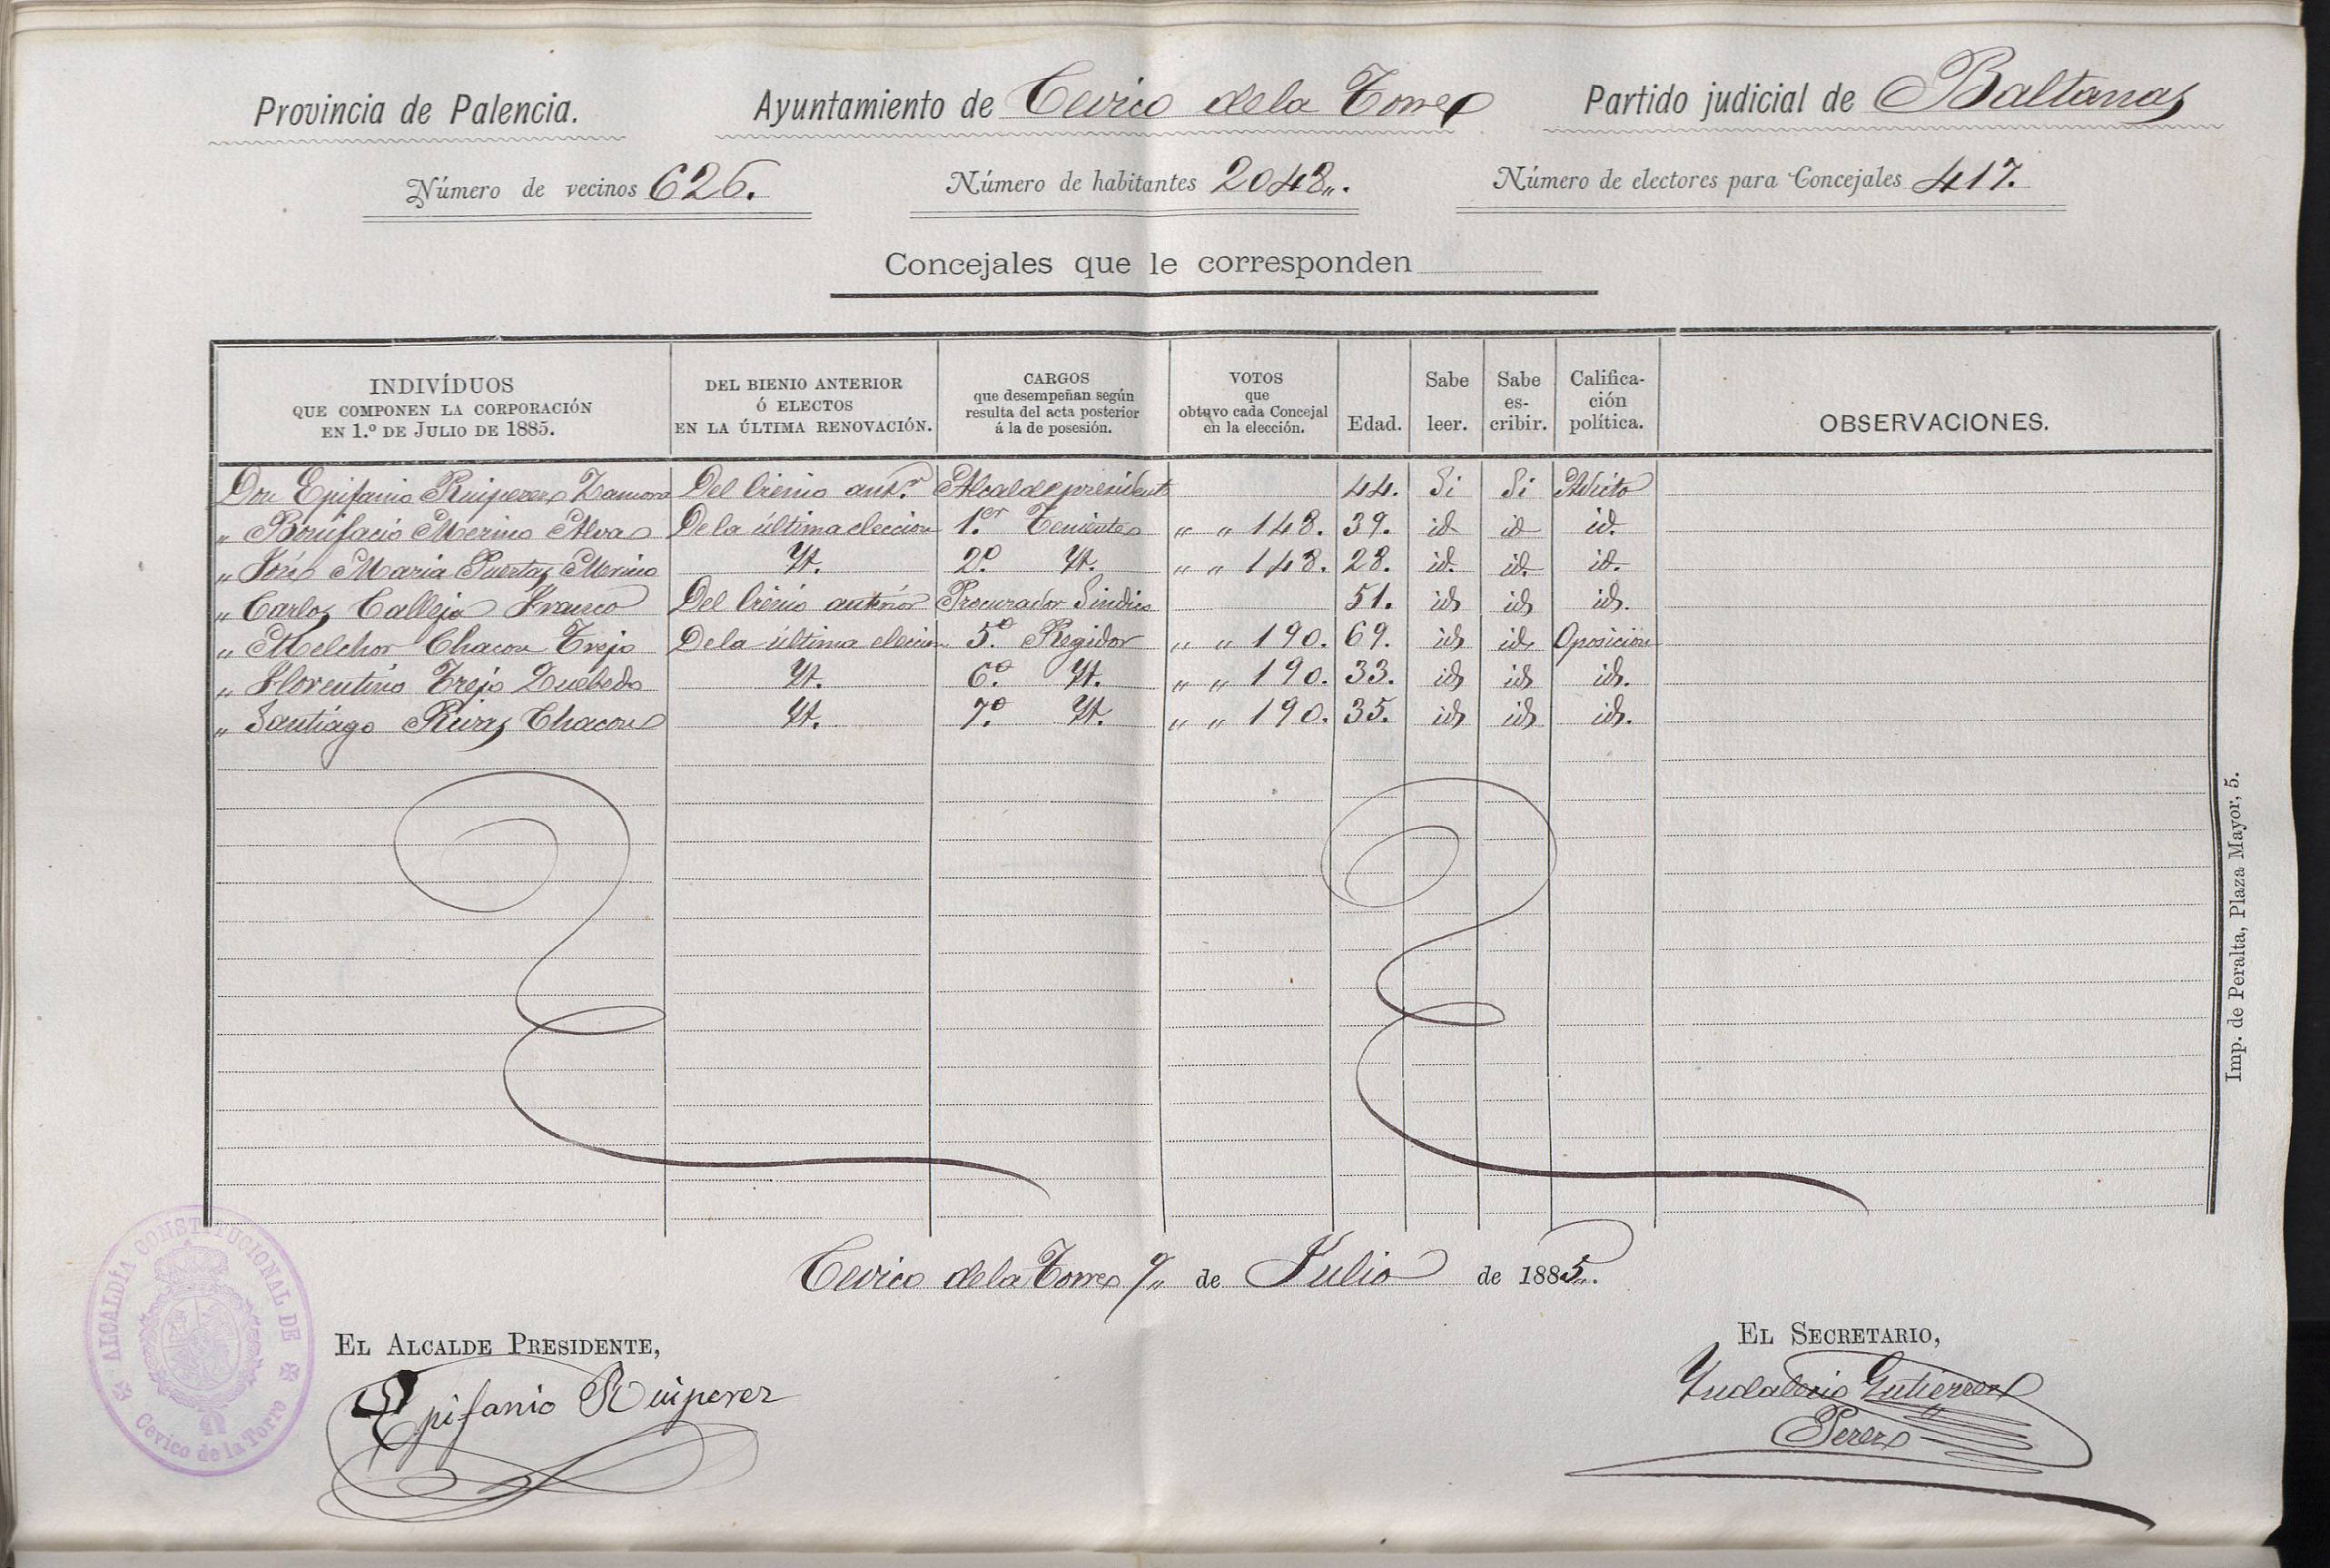 Provincia de Palencia. Ayuntamiento de Cevico dela Torre Partido judicial de Baltanas
Número de vecinos 626. Número de habitantes 2048„. Número de electores para Concejales 417.
Concejales que le corresponden
INDIVÍDUOS QUE COMPONEN LA CORPORACIÓN EN 1.º DE JULIO DE 1885. DEL BIENIO ANTERIOR Ó ELECTOS EN LA ÚLTIMA RENOVACIÓN. CARGOS que desempeñan según resulta del acta posterior á la de posesión. VOTOS que obtuvo cada Concejal en la elección. Edad. Sabe leer. Sabe es- cribir. Califica- ción política. OBSERVACIONES.
Don Epifanio Ruiperez Zamora Del bienio ant.r Alcalde president 44. Si Si Adicto
„ Bonifacio Merino Alva De la última eleccion 1.er Teniente „ „ 148. 39. id id id.
„ José Maria Puertas Merino Yd. 2.º Yd. „ „ 148. 28. id. id. id.
„ Carlos Calleja Franco Del bienio anterior Procurador Sindico 51. id id id.
„ Melchor Chacon Trejo De la última eleccion 5.º Regidor „ „ 190. 69. id id Oposicion
„ Florentino Trejo Yd. 6.º Yd. „ „ 190. 33. id id id.
„ Santiago Chacon Yd. 7.º Yd. „ „ 190. 35. id id id.
Imp. de Peralta, Plaza Mayor, 5.
Cevico dela Torre de Julio de 1885„.
EL ALCALDE PRESIDENTE, EL SECRETARIO,
Epifanio Ruiperez Yndalecio Gutierrez
Perez
ALCALDÍA CONSTITUCIONAL DE Cevico de la Torre